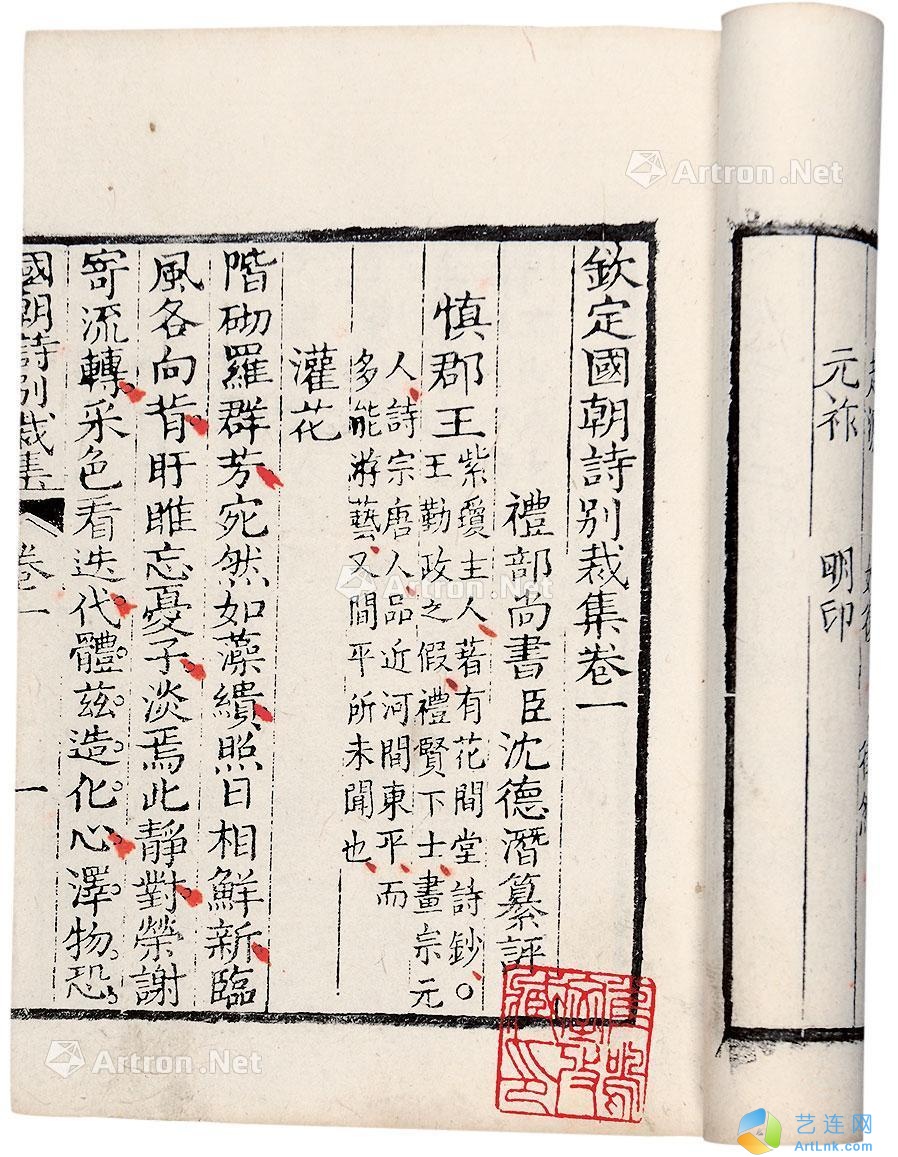 欽定國朝詩別裁集卷一
禮部尚書臣沈德潛纂評
慎郡王
紫瓊主人著有花間堂詩鈔○
王勤政之假禮賢下士畫宗元
人詩宗唐人品近河間東平而
多能游藝又間平所未聞也
灌花
階砌羅群芳宛然如藻繢照日相鮮新臨
風各向背盱睢忘憂子淡焉此靜對榮謝
寄流轉采色看迭代體茲造化心澤物恐
國朝詩別裁集
卷一
一
元祚
明印
Artron.Net
Artron.Net
Artron.Net
Artron.Net
艺连网
ArtLnk.com